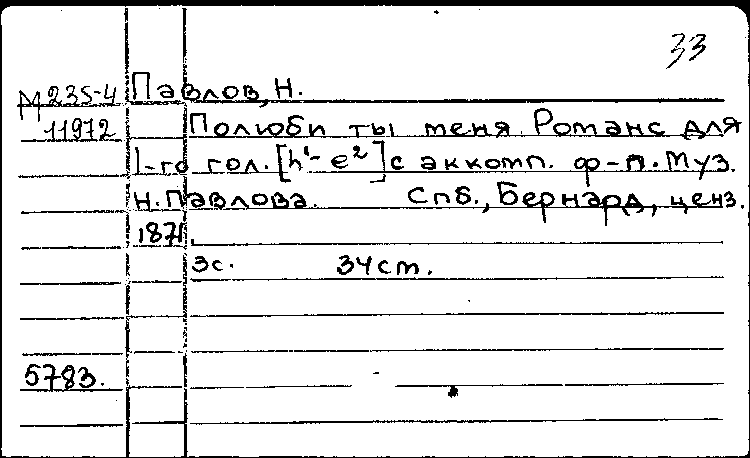 33
М 235-4 Павлов, Н.
11972 Полюби ты меня. Романс для
1-го гол. [h¹- e²] с аккомп. ф-п. Муз.
Н. Павлова. Спб., Бернард, ценз.
1871.
3с. 34 cm.
5783.